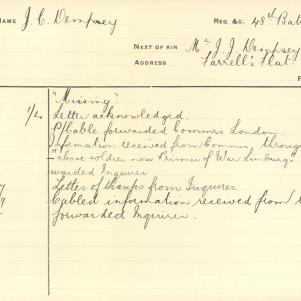 NAME J. C. Dempsey REG. &c. 48th Bat
NEXT OF KIN Mr J. J. Dempsey
ADDRESS Farrell's Flat
"Missing"
1/4 Letter acknowledged.
P/Cable forwarded Commrs London.
Information received from Commrs through
"above soldier now Prisoner of War Limburg"
warded Inquirer
7 Letter of thanks from Inquirer
7 Cabled information received from
forwarded Inquirer.